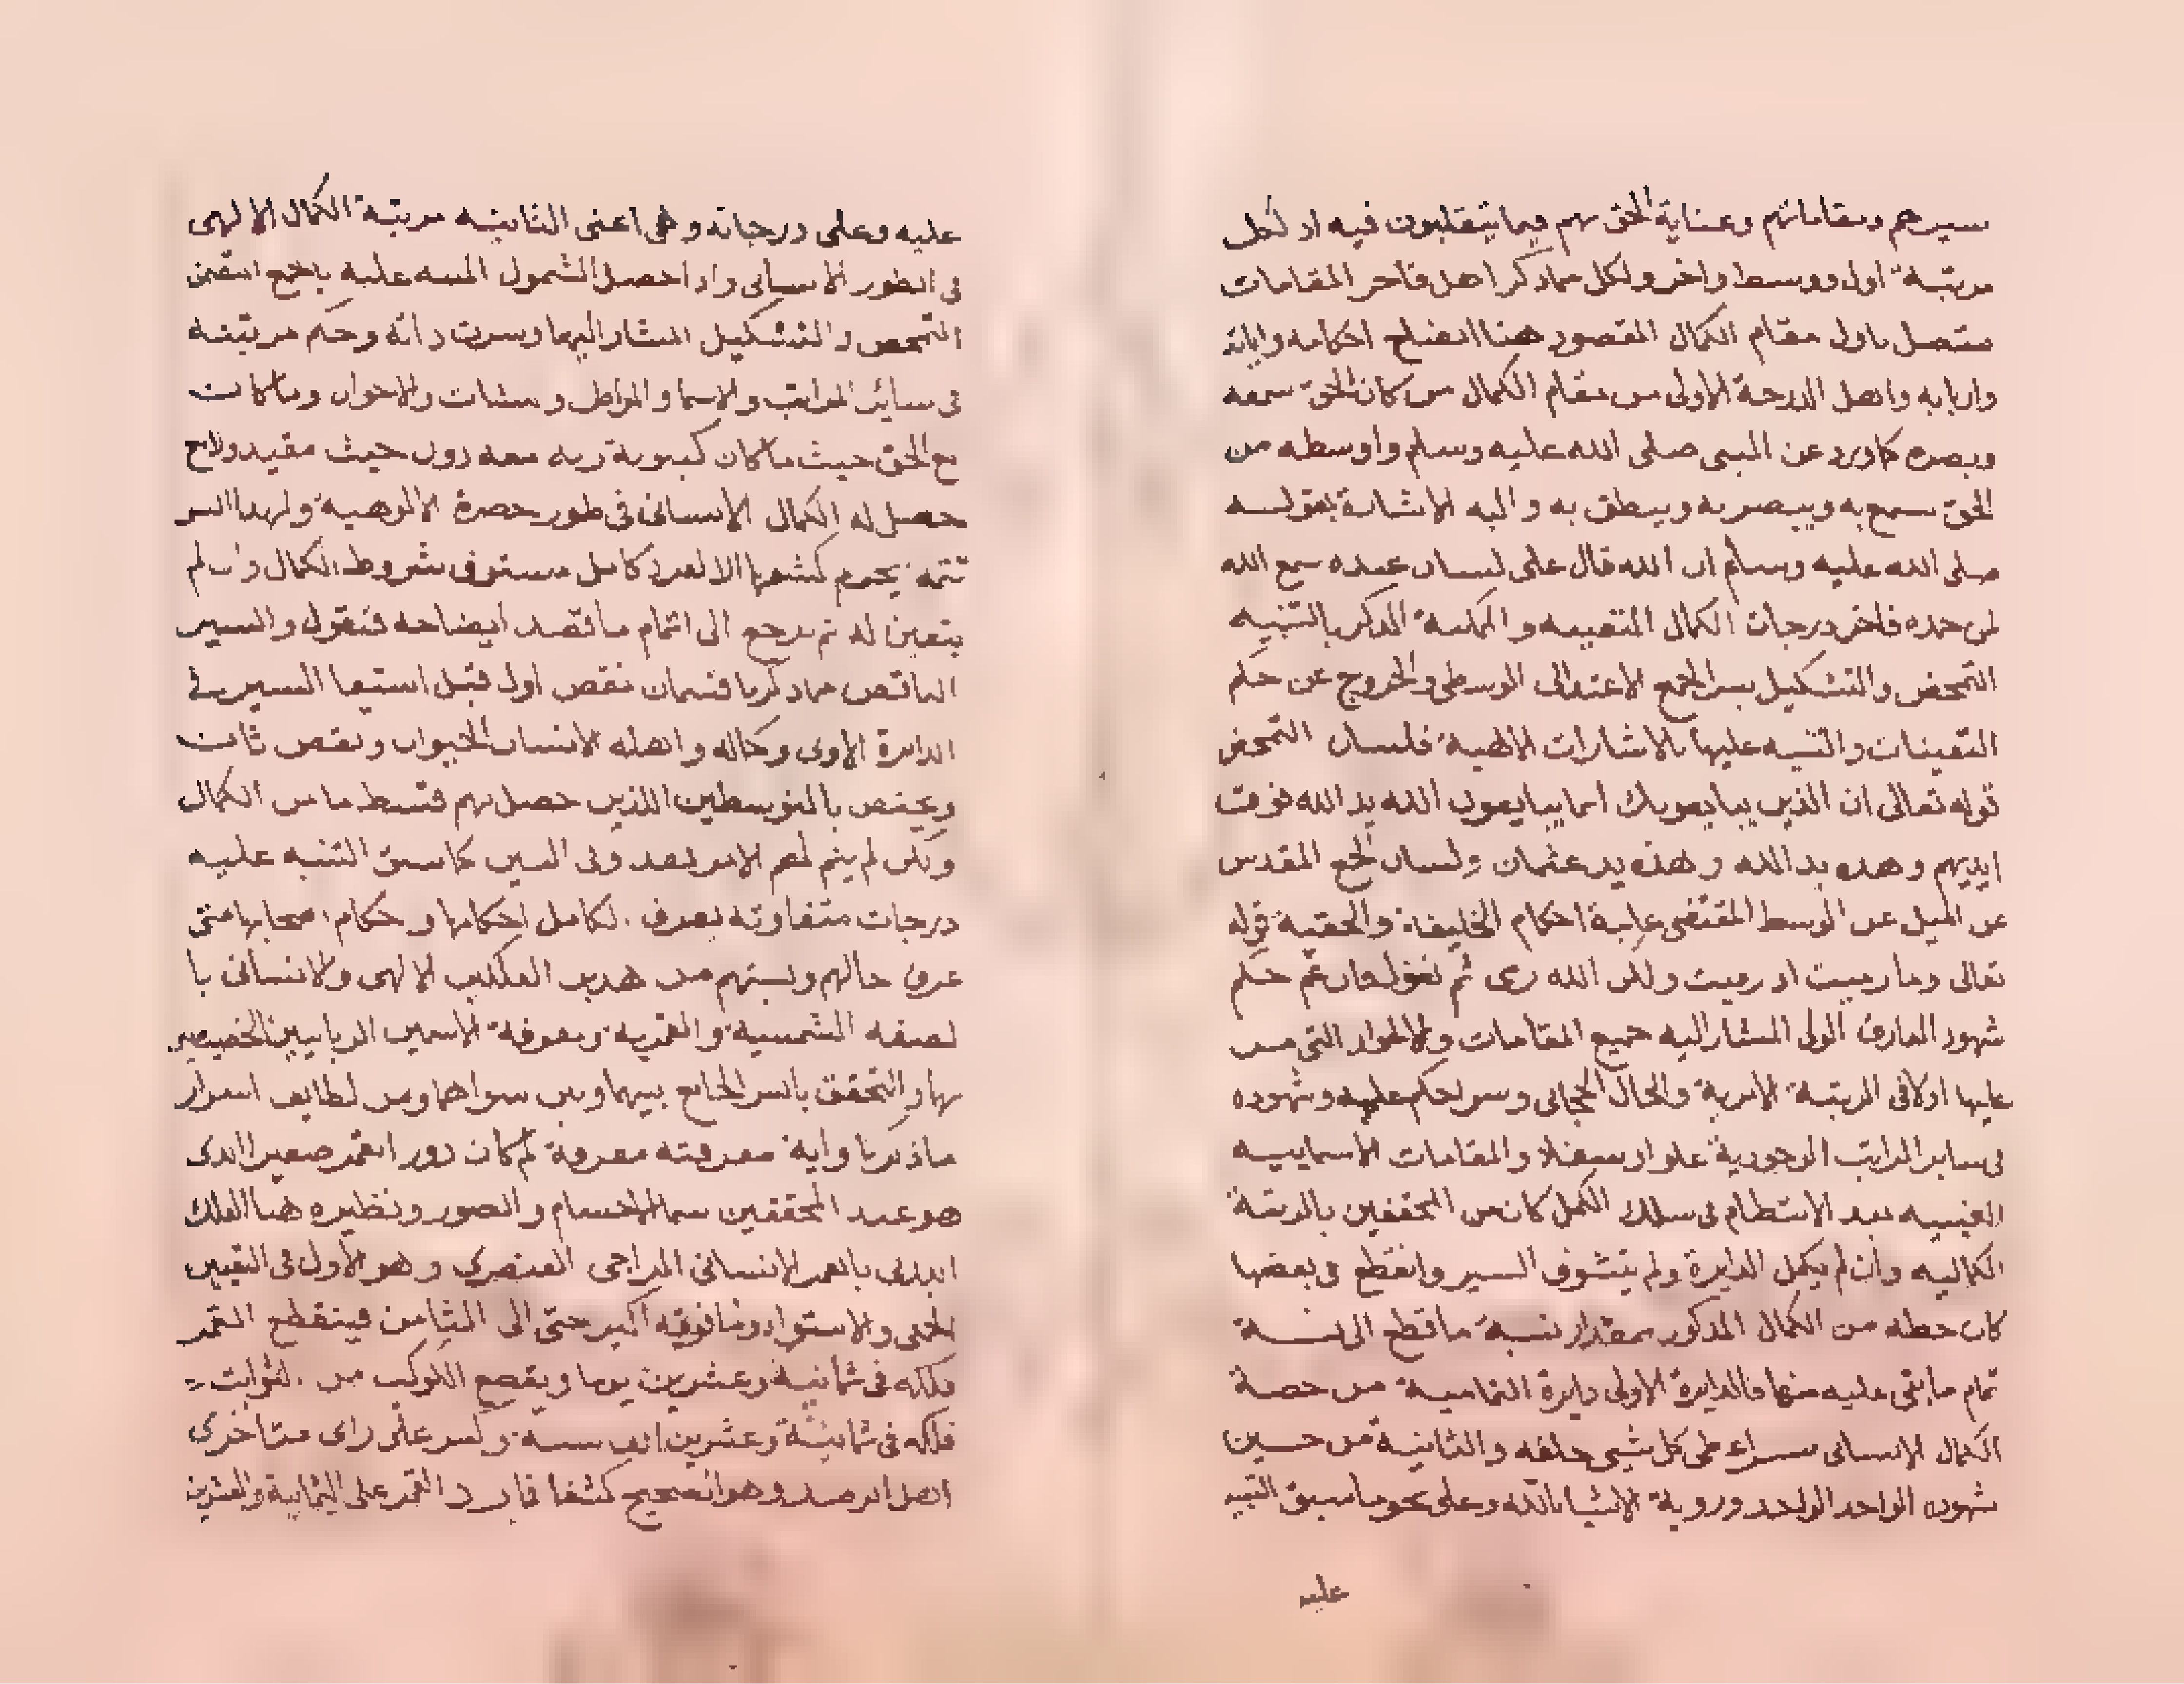 سيرهم ومقاماتهم وعناية الحق بهم فيما يتقلبون فيه اد لكل
مرتبة اول ووسط واخر ولكل مماذكر اهل فاخر المقامات
متصل باول مقام الكمال المقصود هنا ايضاح احكامه واياته
واربابه واهل الدرجة الاولى من مقام الكمال من كان الحق سمعه
وبصره كما ورد عن النبى صلى الله عليه وسلم واوسطه من
الحق سمع به ويبصر به وينطق به واليه الاشارة بقوله
صلى الله عليه وسلم ان الله قال على لسان عبده سمع الله
لمن حمده فاخر درجات الكمال المتعينه والذكر بالتنبيه
التمحض والتشكيل بسر الجمع الاعتدالى الوسطى والخروج عن حكم
التعينات والتنبيه عليها بالاشارات الالهية فلسان التمحض
قوله تعالى ان الذين يبايعونك انما يبايعون الله يد الله فوق
ايديهم وهذه يد الله وهذه يد عثمان ولسان الجمع المقدس
عن الميل عن الوسط المقتضى غلبة احكام الخليقة والحقية قوله
تعالى وما رميت اد رميت ولكن الله رمى ثم نقول فان عم حكم
شهود العارف الولى المشار اليه جميع المقامات والاحوال التى مر
عليها اولا فى المرتبة والحال الحجابى وسرى حكم عليه وشهوده
فى ساير المراتب الوجودية علوا وسفلا والمقامات الاسمايية
الغيبيه بعد الانتظام فى سلك الكمل كان من المحققين بالرتبة
الكماليه وان لم يكمل الدايرة ولم يستوف السير وانقطع فى بعضها
كان حظه من الكمال المذكور بمقدار نسبة ما قطع الى نسبة
تمام ما بقى عليه منها فالدايرة الاولى دايرة التمامية من حصة
الكمال الانسانى سر اعطى كل شيى خلقه والثانية من حين
شهوده الواحد الواحد ورؤية الاشيا بالله وعلى نحو ما سبق التنبيه
عليه
عليه وعلى درجاته وهى اعنى الثانيه مرتبة الكمال الالهى
فى الطور الانسانى واذا حصل الشمول المنبه عليه بالجمع المتضمن
التمحص والتشكيل المشار اليهما وسرت ذاته وحكم مرتبته
فى ساير المراتب والاسما والمواطن والنشات والاحوال وما كانت
مع الحق حيث ما كان كينونة ربه معه دون حيث مقيد ولامع
حصل له الكمال الانسانى فى طور حضرة الالوهية ولهذا السر
تتمة يحرم كشفها الا لفرد كامل مستوف شروط الكمال وان لم
يتعين له ثم نرجع الى اتمام ما قصد ايضاحه فنقول والسير
الناقص مما ذكرنا قسمان نقص اول قبل استيفا السير فى
الدايرة الاولى وحاله واهله الانسان الحيوان ونقص ثان
ويختص بالمتوسطين الذين حصل لهم قسط ما من الكمال
ولكن لم يتم لهم الامر بعد وفى السير كما سبق التنبه عليه
درجات متفاوته يعرف الكامل احكامها واحكام اصحابها متى
عرف حالهم ونسبتهم من هدين الفلكين الالهى والانسانى با
لصفه الشمسية والقمريه ومعرفة الاسمين الربانيين الخصيصين
بهما والتحقق بالسر الجامع بينهما وبين سواهما ومن لطايف اسرار
ماذكرنا واية معرفته معرفة لم كان دور القمر صغير الذى
هو عند المحققين سما الاجسام والصور ونظيره هنا الفلك
ابتدئ بالعمر الانسانى المزاجى العنصرى وهو الاول فى التعيين
الحسى والاستواء وما فوقه اكبر حتى الى الثامن فيقطع القمر
فلكه فى ثمانية وعشرين يوما ويقطع الكوكب من الثوابت
فلكه فى ثمانية وعشرين الف سنة وكسر على راى متاخرى
اهل الرصد وهو الصحيح كشفا فادرد القمر على الثمانية والعشرين